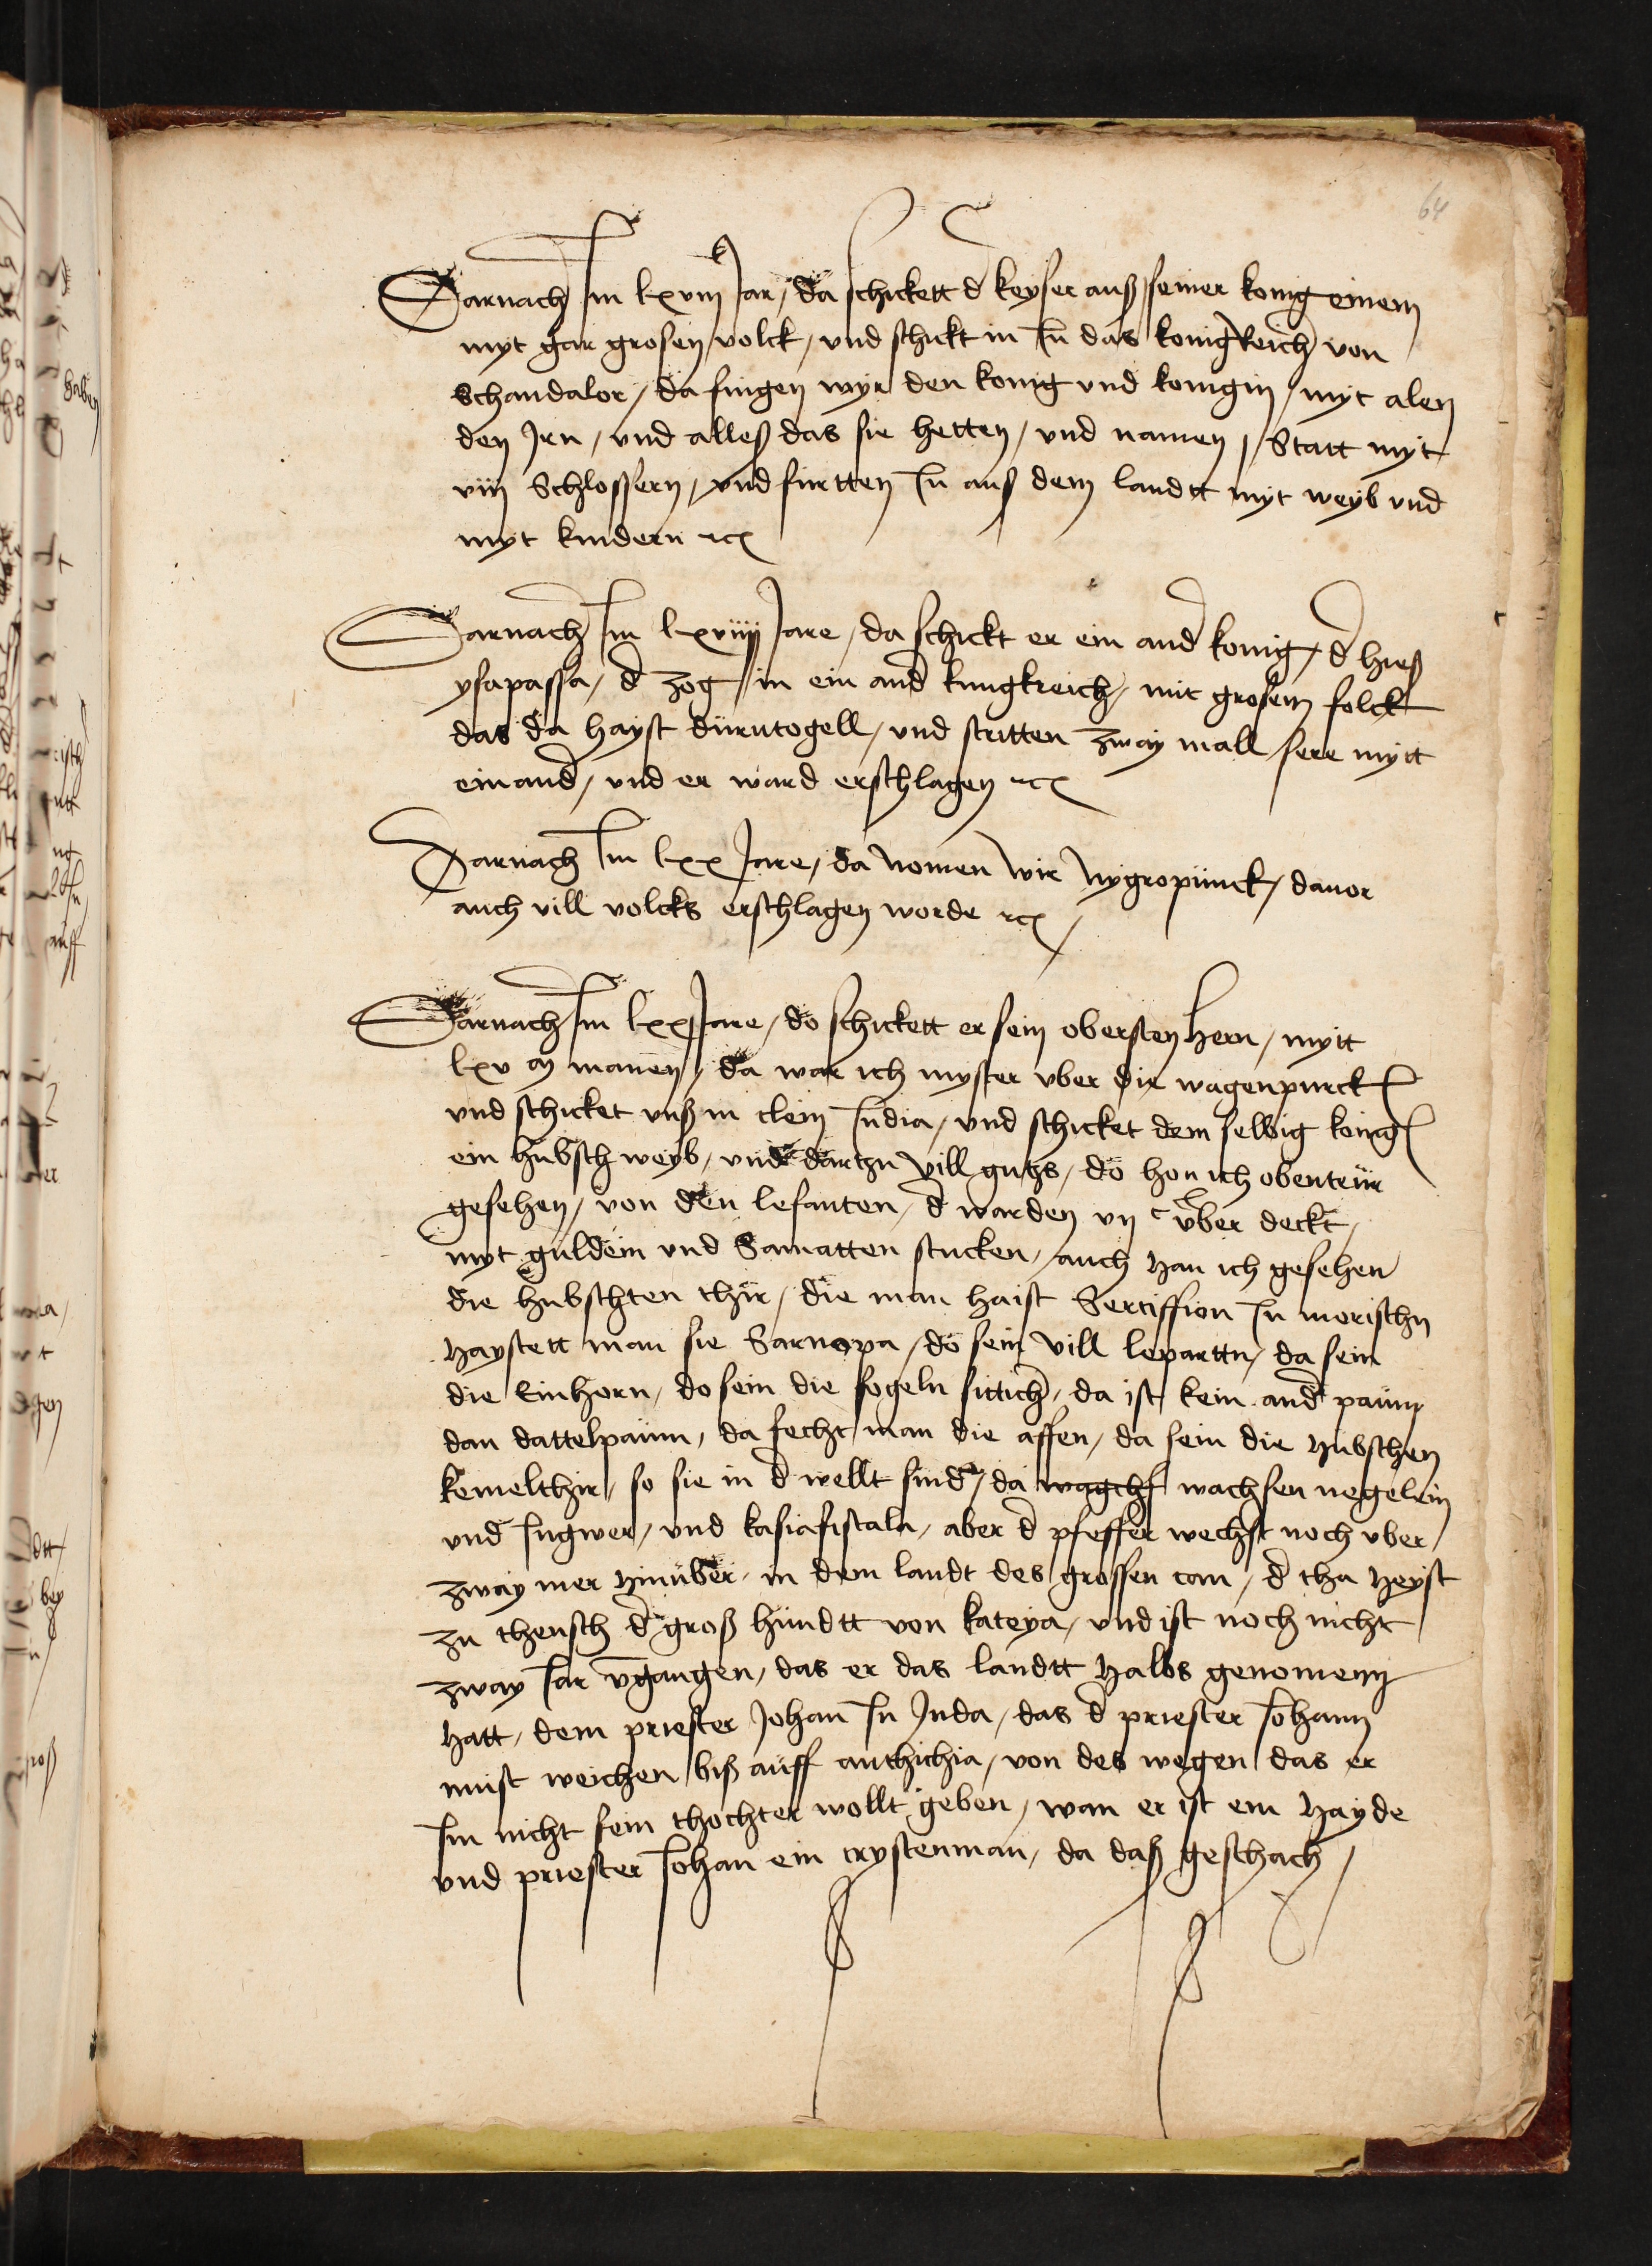 64
Darnach Im lxviii Jar / da schickett d keyser auß seiner konig einem
myt gar grosen volck / vnd schickt in In das konigkreich von
Schandalor / da fingen wyr den konig vnd konigin / myt alen
den Jrn / vnd alleß das sie hetten / vnd namen / Statt myt
viij Schlossern / vnd furtten In auß dem landtt myt weyb vnd
myt kindern ꝛc
Darnach Im lxviiij Jare / da schickt er ein and konig / d hieß
ysapassa / d zog in ein and kungkreich / mit grosem folck
das da hayst durutogell / vnd stritten zway mall sere mytt
einand / vnd er ward erschlagen ꝛc
Darnach Im lxx Jare / da nomen wir Nygropünck / dauor
auch vill volcks erschlagen worde ꝛc
Darnach Im lxxj Jare / do schickett er sein obersten hern / mytt
lxv m manen / da war ich myster vber die wagenpurck
vnd schicket vnß in clein India / vnd schicket dem selbig konig
ein hubsch weyb / vnd dartzu vill gutzs / do hon ich obenteur
gesehen / von den lefanten / d warden vij c vber deckt /
myt guldem vnd Samatten stucken / auch han ich gesehen
die hubschten thir / die man haist Sertiffion In morischn
haystett man sie Sarnopa / do sein vill lepartten / da sein
die Einhorn / do sein die fogeln sittich / da ist kein and paum
dan dattelpaum / da fecht man die affen / da sein die hubschen
kemelthir / so sie in d wellt sind / da wagchs wachsen negelein
vnd Ingwer / vnd kasiafistala / aber d pfeffer wechst noch vber
zway mer hinuber / in dem landt des grossen can / d tha heyst
zu theusch d groß hundtt von kateya / vnd ist noch nicht
zway Jar vgangen / das er das landtt halbs genomenn
hatt / dem priester Johan In Inda / das d priester Johann
must weichen biß auff anthichia / von des wegen das er
Im nicht sein thochter wollt geben / wan er ist ein hayde
vnd priester Johan ein crystenman / da daß geschach /